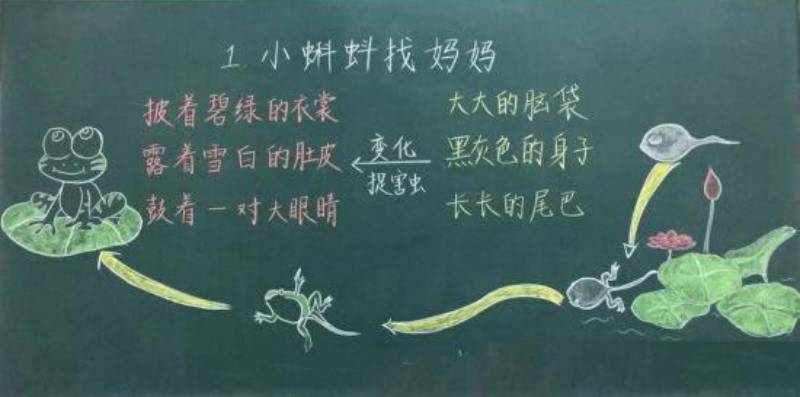 1 小蝌蚪找妈妈
披着碧绿的衣裳
露着雪白的肚皮
鼓着一对大眼睛
变化
捉害虫
大大的脑袋
黑灰色的身子
长长的尾巴